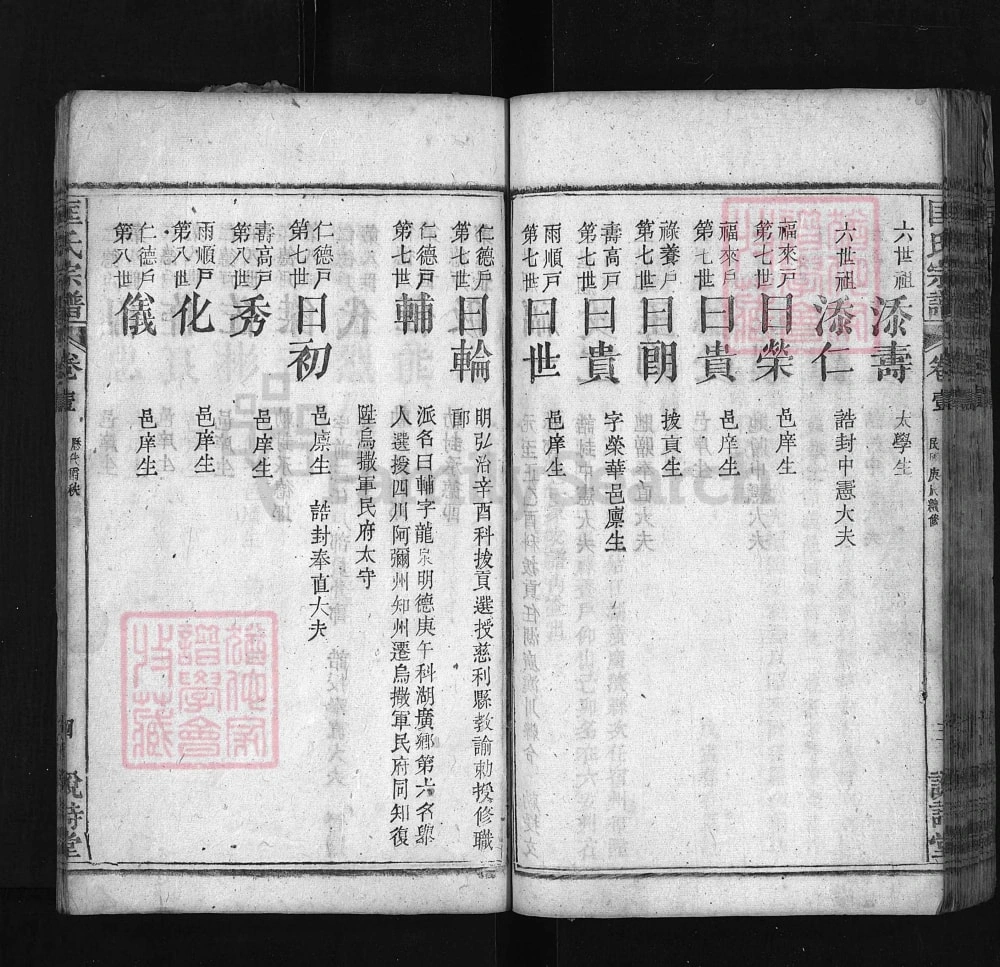 匡氏宗譜
卷壹
六世祖 添壽 太學生
六世祖 添仁 誥封中憲大夫
福來戶第七世 曰榮 邑庠生
福來戶第七世 曰貴 邑庠生
祿養戶第七世 曰朗 拔貢生
壽高戶第七世 曰貴 字榮華邑廪生
雨順戶第七世 曰世 邑庠生
仁德戶第七世 曰輪 明弘治辛酉科拔貢選授慈利縣教諭勅授修職
郎
仁德戶第七世 輔 派名曰輔字龍泉明德庚午科湖廣鄉第六名舉
人選授四川阿彌州知州遷烏撒軍民府同知復
陞烏撒軍民府太守
仁德戶第七世 曰初 邑廪生 誥封奉直大夫
壽高戶第八世 秀 邑庠生
雨順戶第八世 化 邑庠生
仁德戶第八世 儀
匡氏宗譜
卷壹
四
說詩堂
FamilySearch